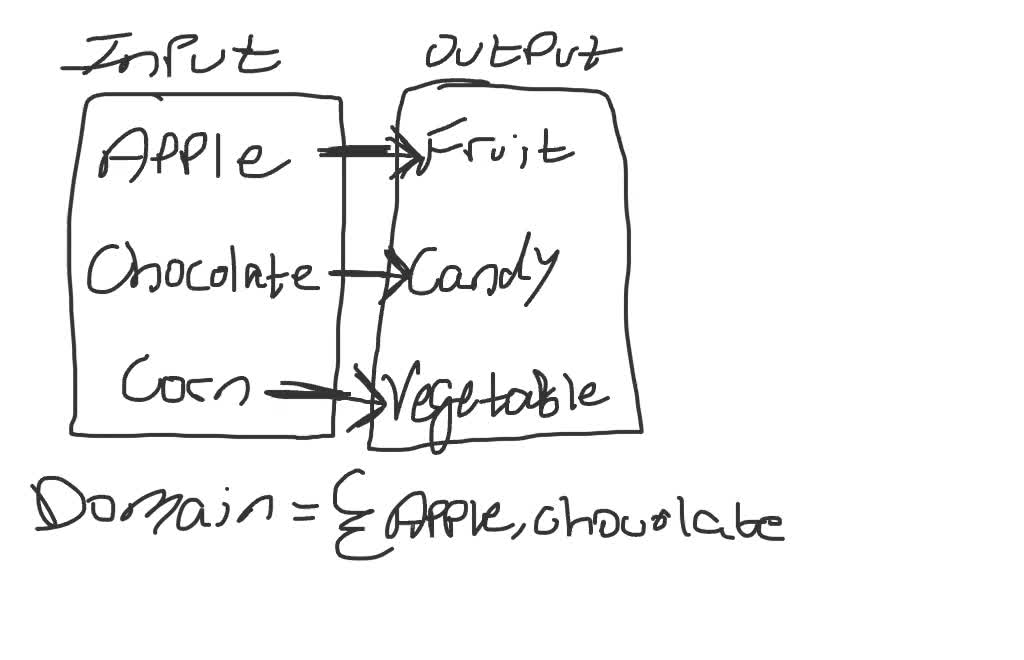 Input Output
Apple Fruit
Chocolate Candy
Corn Vegetable
Domain = { Apple, chocolate